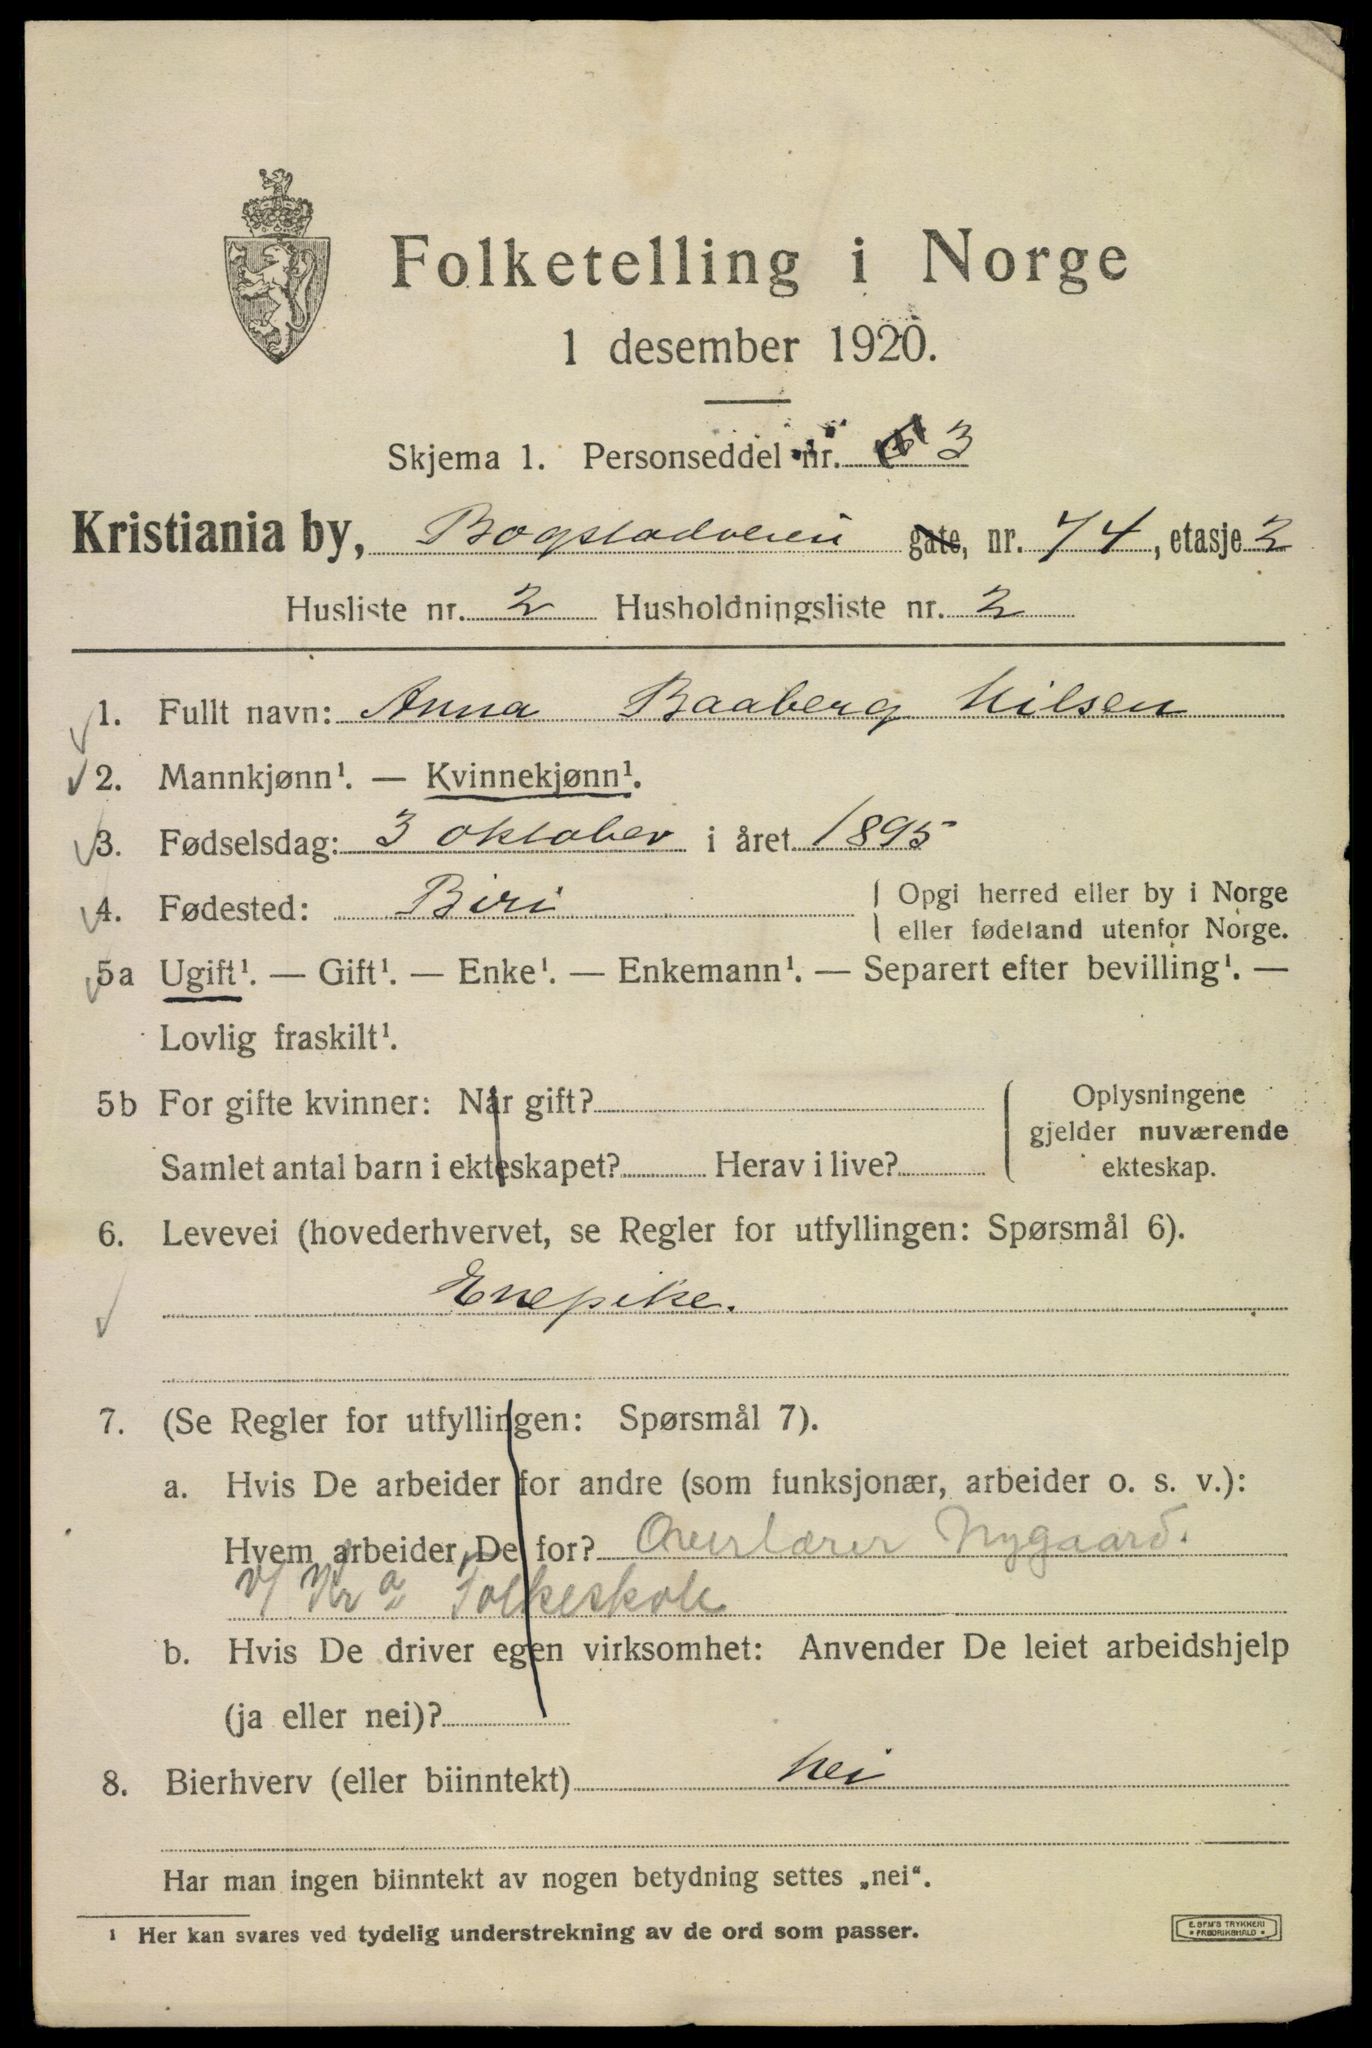 Folketelling i Norge
1 desember 1920.
Skjema 1. Personseddel nr. 3
Kristiania by, Bogstadveien gate, nr. 74, etasje 2
Husliste nr. 2 Husholdningsliste nr. 2
1. Fullt navn: Anna Baaberg Nilsen
2. Mannkjønn¹. — Kvinnekjønn¹.
3. Fødselsdag: 3 oktober i året 1895
4. Fødested: Biri
Opgi herred eller by i Norge
eller fødeland utenfor Norge.
5a Ugift¹. — Gift¹. — Enke¹. — Enkemann¹. — Separert efter bevilling¹. —
Lovlig fraskilt¹.
5b For gifte kvinner: Når gift?
Samlet antal barn i ekteskapet? Herav i live?
Oplysningene
gjelder nuværende
ekteskap.
6. Levevei (hovederhvervet, se Regler for utfyllingen: Spørsmål 6).
Enepike.
7. (Se Regler for utfyllingen: Spørsmål 7).
a. Hvis De arbeider for andre (som funksjonær, arbeider o. s. v.):
Hvem arbeider De for? Overlærer Nygaard.
v/ Kr a Folkeskole
b. Hvis De driver egen virksomhet: Anvender De leiet arbeidshjelp
(ja eller nei)?
8. Bierhverv (eller biinntekt) nei
Har man ingen biinntekt av nogen betydning settes „nei“.
¹ Her kan svares ved tydelig understrekning av de ord som passer.
E. SEM'S TRYKKERI
* FREDRIKSHALD *